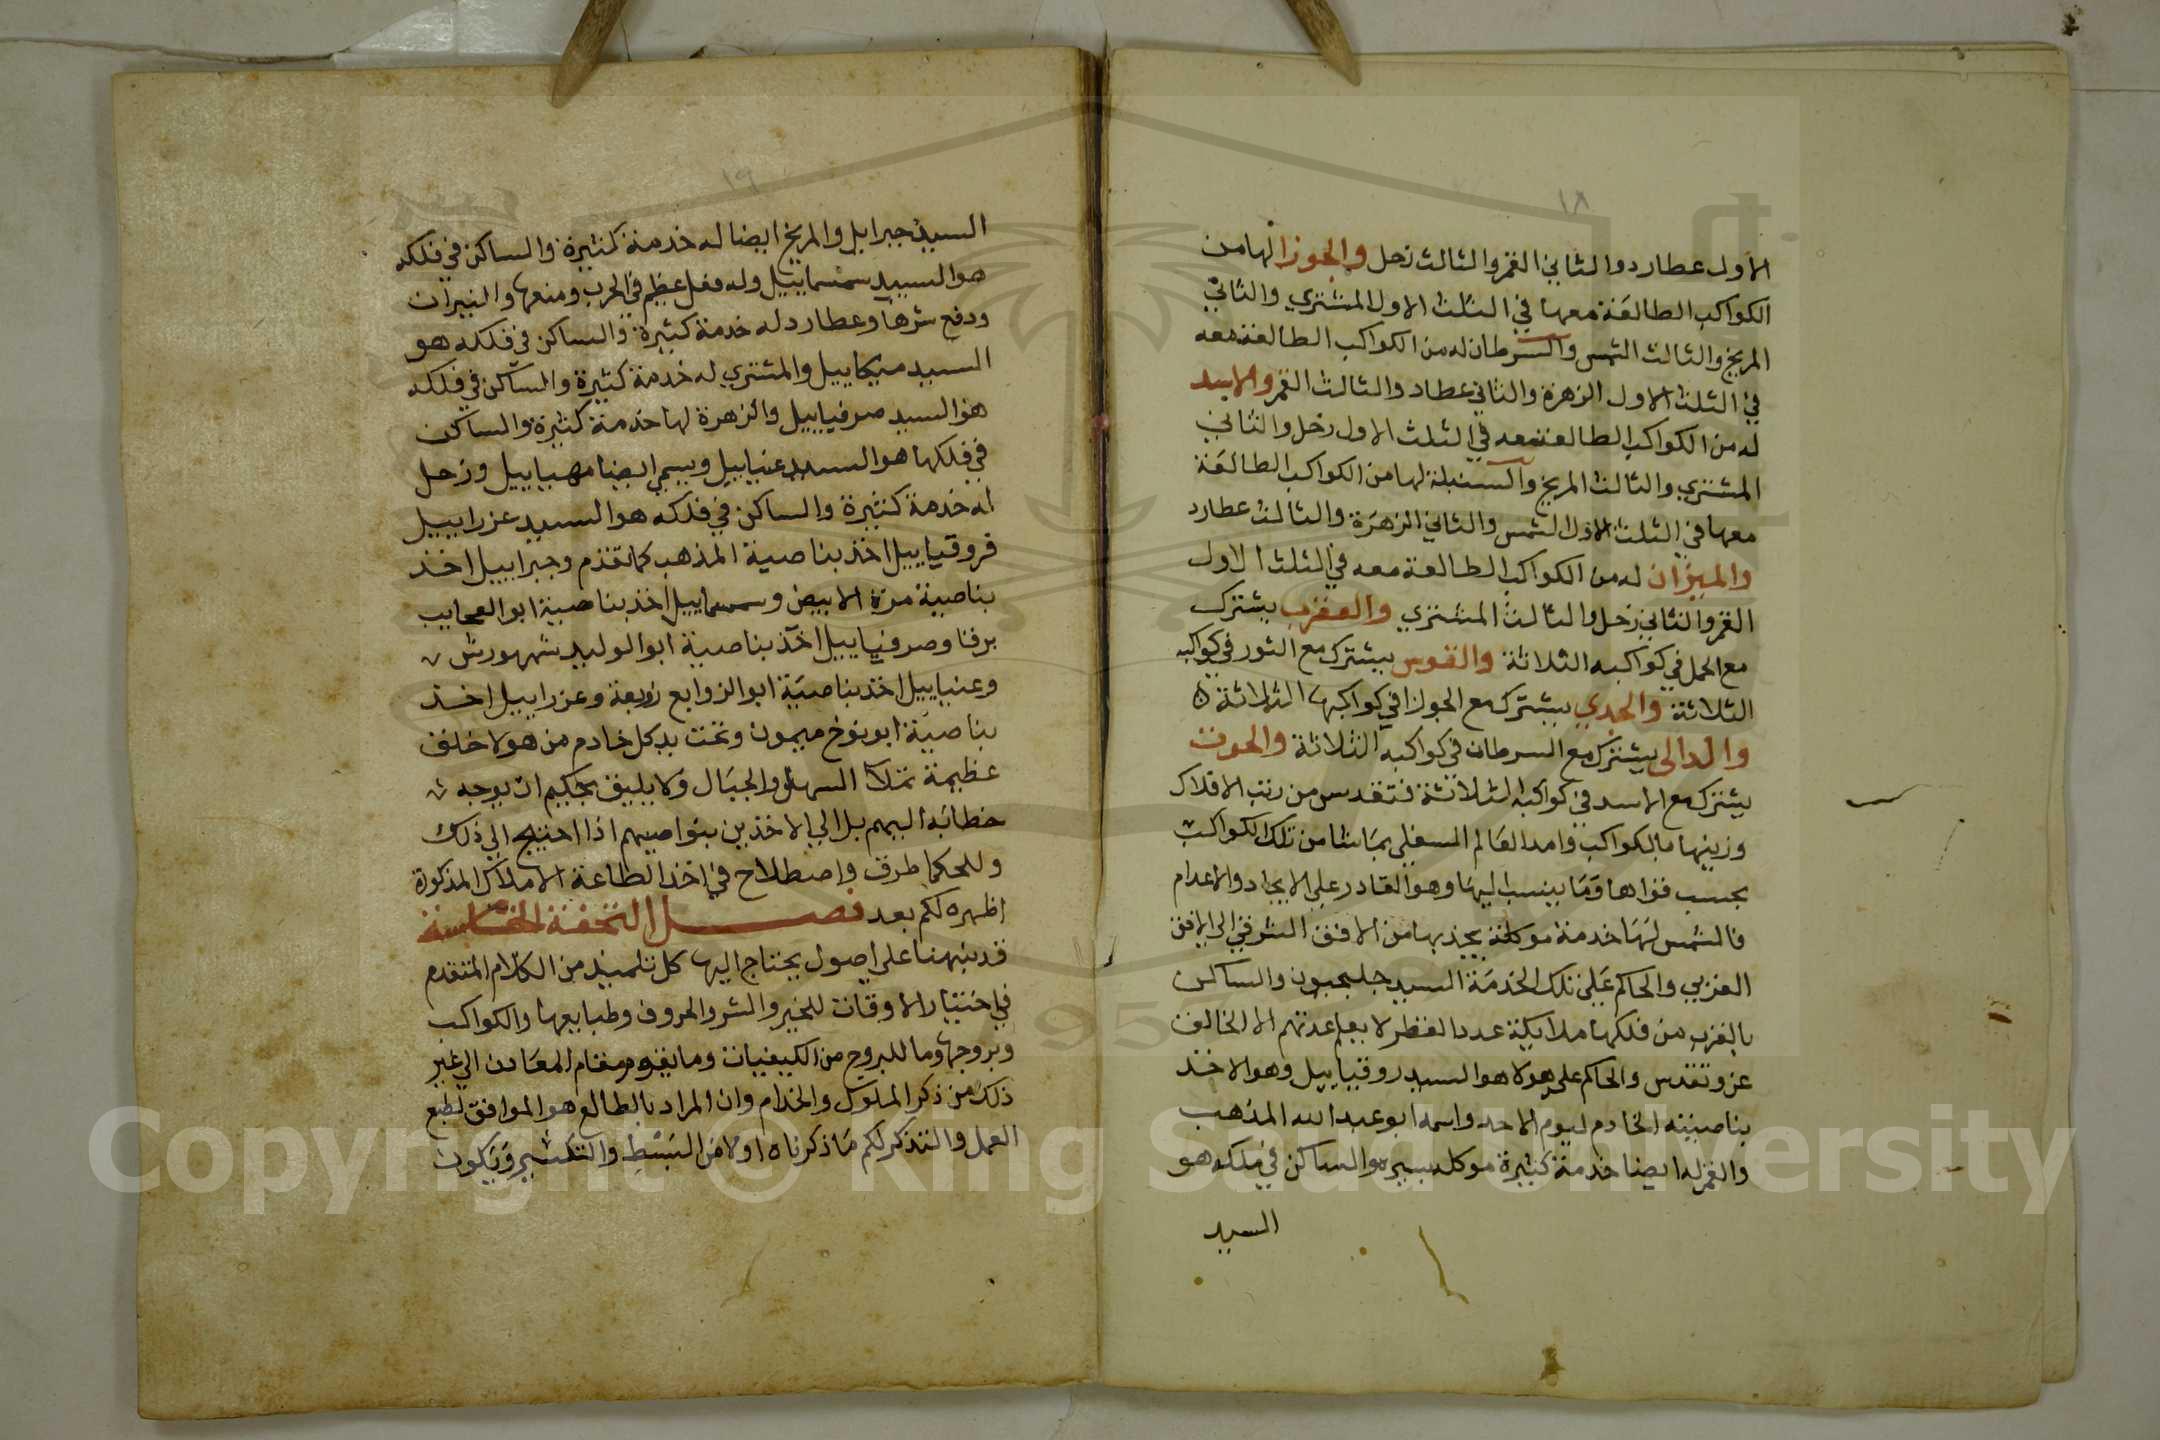 ١٨
الاول عطارد والثاني القمر والثالث زحل والجوزا لها من
الكواكب الطالعة معها في الثلث الاول المشتري والثاني
المريخ والثالث الشمس والسرطان له من الكواكب الطالعة معه
في الثلث الاول الزهرة والثاني عطاد والثالث القمر والاسد
له من الكواكب الطالعة معه في الثلث الاول زحل والثاني
المشتري والثالث المريخ والسنبلة لها من الكواكب الطالعة
معها في الثلث الاول الشمس والثاني الزهرة والثالث عطارد
والميزان له من الكواكب الطالعة معه في الثلث الاول
القمر والثاني زحل والثالث المشتري والعقرب يشترك
مع الحمل في كواكبه الثلاثة والقوس يشترك مع الثور في كواكبه
الثلاثة والجدي يشترك مع الجوزا في كواكبها الثلاثة
والدالي يشترك مع السرطان في كواكبه الثلاثة والحوت
يشترك مع الاسد في كواكبه الثلاثة فتقدس من رتب الافلاك
وزينها بالكواكب وامد العالم السفلي بما شا من تلك الكواكب
بحسب قواها وما ينسب اليها وهو القادر على الايجاد والاعدام
فالشمس لها خدمة موكلة بجذبها من الافق الشرقي الى الافق
الغربي والحاكم على تلك الخدمة السيد والساكن
بالقرب من فلكها ملايكة عدد القطر لا يعلم عدتهم الا الخالق
عز وتقدس والحاكم على هولا هو السيد روقياييل وهو الاخذ
بناصيته الخادم ليوم الاحد واسمه ابو عبد الله المذهب
والقمر له ايضا خدمة كثيرة موكله بسيره والساكن في فلكه هو
السيد
١٩
السيد جبرايل والمريخ ايضا له خدمة كثيرة والساكن في فلكه
هو السيد سمسماييل وله فعل عظيم في الحرب ومنعها والنيران
ودفع شرها وعطارد له خدمة كثيرة والساكن في فلكه هو
السيد ميكاييل والمشتري له خدمة كثيرة والساكن في فلكه
هو السيد صرفياييل والزهرة لها خدمة كثيرة والساكن
في فلكها هو السيد عنياييل ويسمى ايضا مهياييل وزحل
له خدمة كثيرة والساكن في فلكه هو السيد عزراييل
فروقياييل اخذ بناصية المذهب كما تقدم وجبراييل اخذ
بناصية مرة الابيض وسمسماييل اخذ بناصية ابو العجايب
برقنا وصرفياييل اخذ بناصية ابو الوليد شمهورش
وعنياييل اخذ بناصية ابو الزوابع زوبعة وعزراييل اخذ
بناصية ابو نوخ ميمون وتحت يد كل خادم من هولا خلق
عظيمة تملا السهل والجبال ولا يليق بحكيم ان يوجه
خطابه اليهم بل الي الاخذين بنواصيهم اذا احتيج الي ذلك
وللحكما طرق واصطلاح في اخذ الطاعة الاملاك المذكورة
اظهره لكم بعد فصل التحفة الخامسة
قد نبهنا علي اصول يحتاج اليها كل تلميذ من الكلام المتقدم
في اختيار الاوقات للخير والشر والحروف وطبايعها والكواكب
وبروجها وما للبروج من الكيفيات وما يقوم مقام المعادن الي غير
ذلك من ذكر الملوك والخدام وان المراد بالطالع هو الموافق لطبع
العمل والتذكر لكم ما ذكرناه اولا من البسط والتكسير ويكون
Copyright © King Saud University